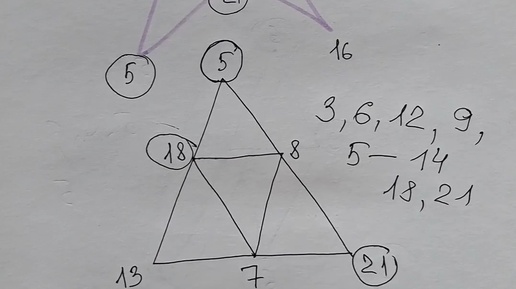 5
16
5
3, 6, 12, 9,
18 8
5 — 14
18, 21
13 7 21